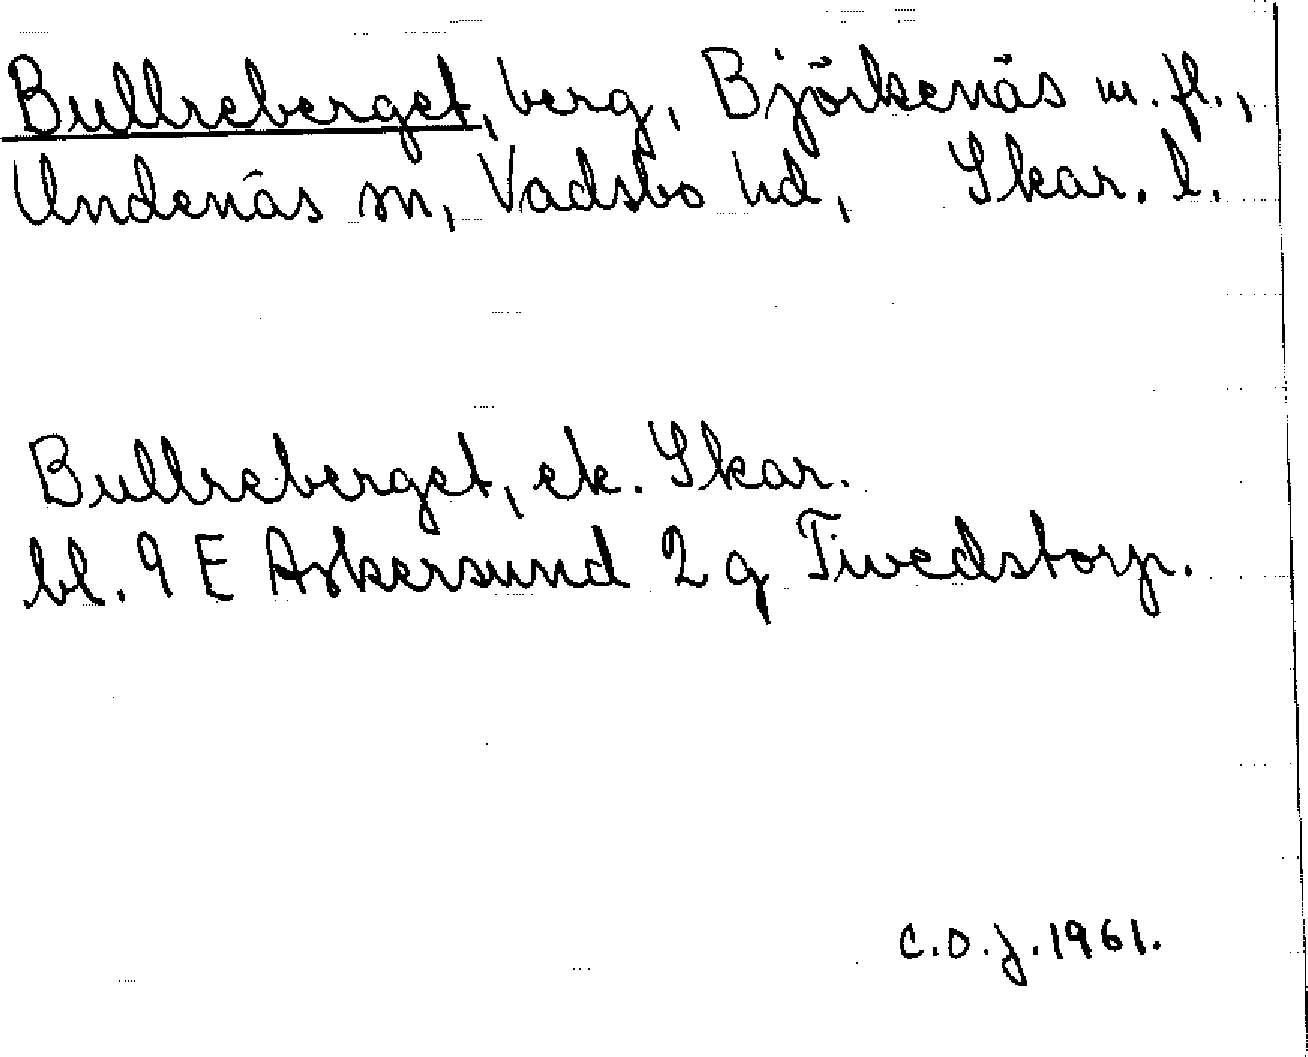 Bullreberget, berg, Björkenäs m. fl.,
Undenäs sn, Vadsbo hd, Skar. l.
Bullreberget, ek. Skar.
bl. 9 E Askersund 2 g Tivedstorp.
C.O.J. 1961.